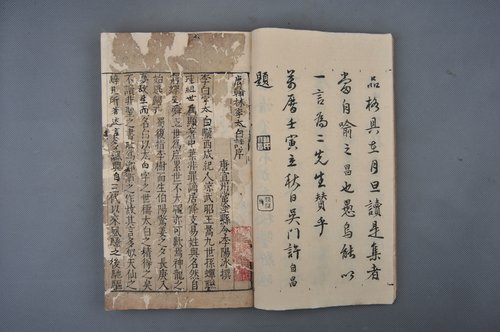 品格具在月旦讀是集者
當自喻之昌也愚烏能以
一言為二先生贊乎
萬曆壬寅立秋日吳門許自昌
題
唐翰林李太白詩序
唐宣州當塗縣令李陽冰撰
李白字太白隴西成紀人涼武昭王暠九世孫蟬聯
珪組世為顯著中葉非罪謫居條支易姓與名然自
窮蟬至舜五世為庶累世不大曜亦可歎焉神龍之
始逃歸蜀復指李樹而生伯陽驚姜之夕長庚入
夢故生而名白以太白字之世稱太白之精得之矣
不讀非聖之書恥為之作故其言多似天仙之
辭凡所著述言多諷興自三代以來風騷之後馳驅